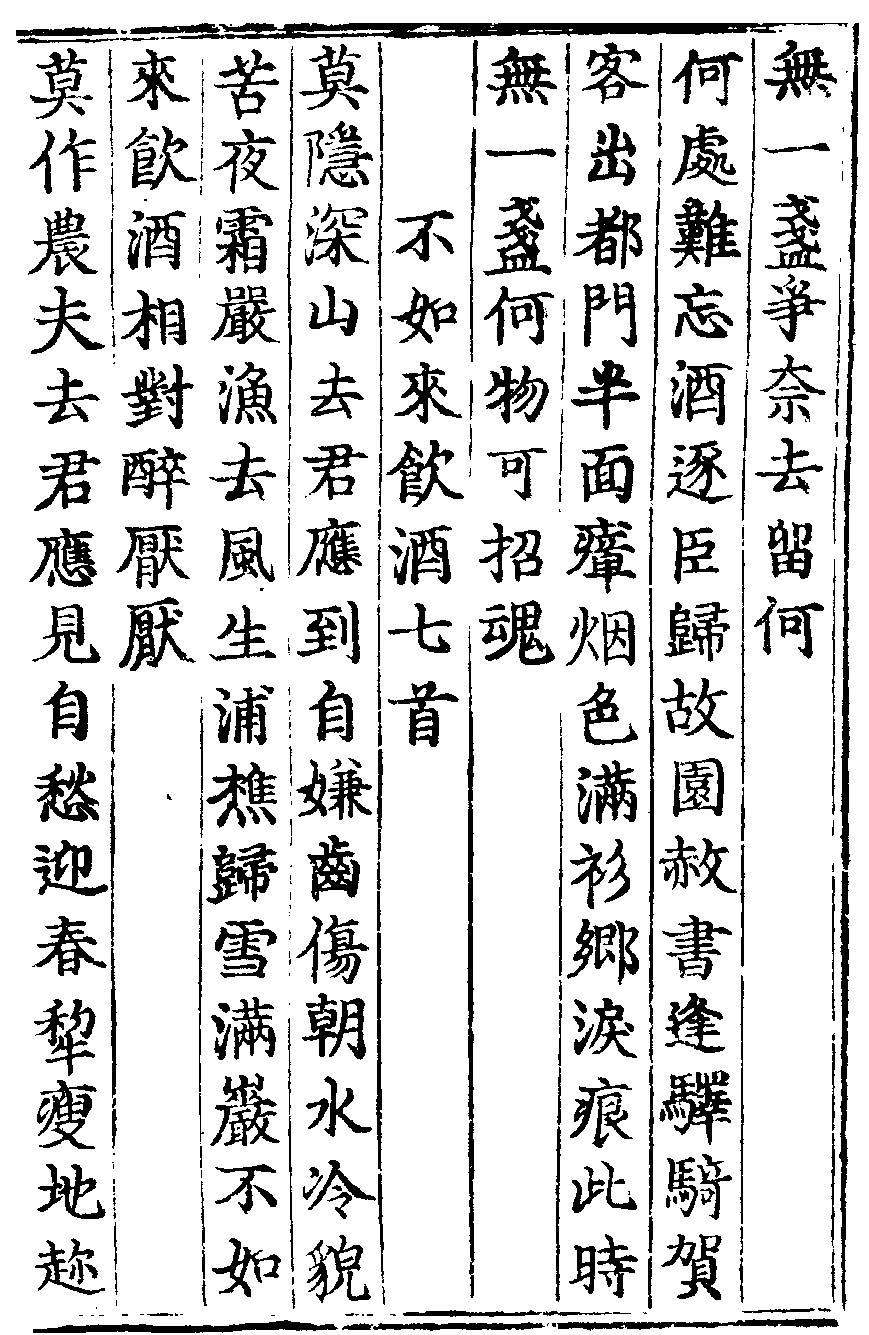 無一盞爭奈去留何
何處難忘酒逐臣歸故園赦書逢驛騎賀
客出都門半面瘴烟色滿衫鄉淚痕此時
無一盞何物可招魂
不如來飲酒七首
莫隱深山去君應到自嫌齒傷朝水冷貌
苦夜霜嚴漁去風生浦樵歸雪滿巖不如
來飲酒相對醉厭厭
莫作農夫去君應見自愁迎春犂瘦地趂